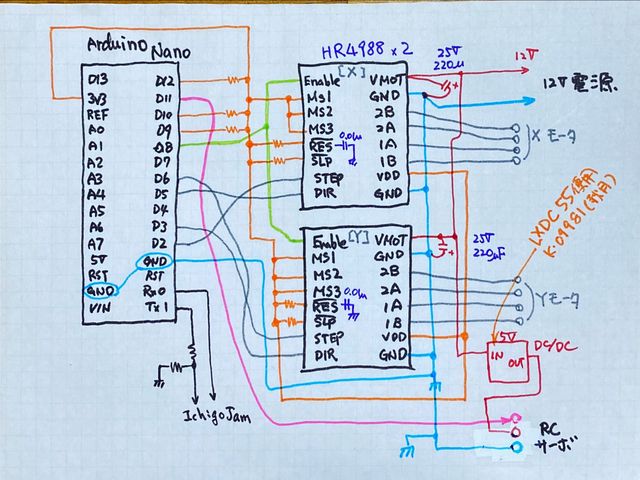 Arduino Nano
D13 D12
3V3 D11
REF D10
A0 D9
A1 D8
A2 D7
A3 D6
A4 D5
A5 D4
A6 D3
A7 D2
5V GND
RST RST
GND Rx0
VIN Tx1
IchigoJam
HR4988 x 2
[X]
Enable VMOT
MS1 GND
MS2 2B
MS3 2A
RES 1A
SLP 1B
STEP VDD
DIR GND
0.01u
25V
220u
12V
12V電源
Xモータ
[Y]
Enable VMOT
MS1 GND
MS2 2B
MS3 2A
RES 1A
SLP 1B
STEP VDD
DIR GND
0.01u
25V
220uF
Yモータ
LXDC55(使用)
5V
IN OUT
DC/DC
RC
サーボ